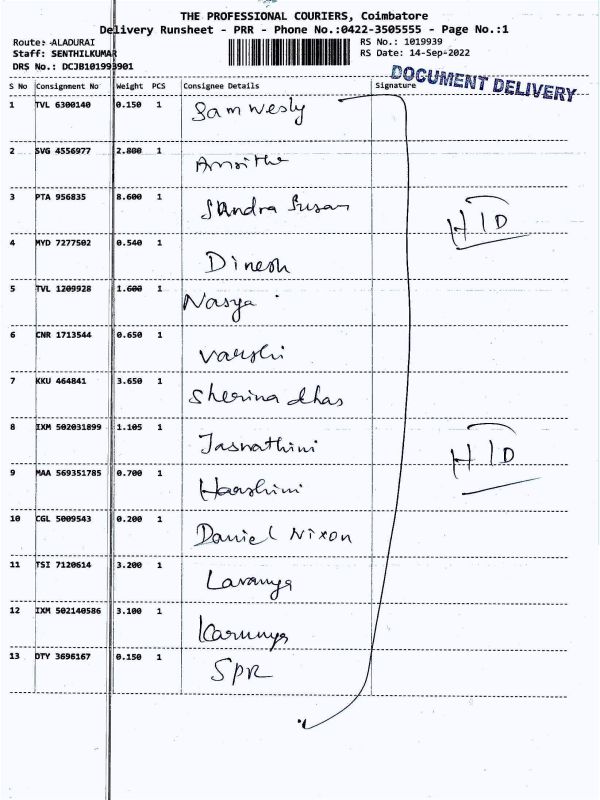 THE PROFESSIONAL COURIERS, Coimbatore
Delivery Runsheet - PRR - Phone No.:0422-3505555 - Page No.:1
Route: ALADURAI RS No.: 1019939
Staff: SENTHILKUMAR RS Date: 14-Sep-2022
DRS No.: DCJB101993901
DOCUMENT DELIVERY
S No Consignment No Weight PCS Consignee Details Signature
1 TVL 6300140 0.150 1 Sam Wesly
2 SVG 4556977 2.800 1
3 PTA 956835 8.600 1 Sandra Susan
H/D
4 MYD 7277502 0.540 1 Dinesh
5 TVL 1209928 1.600 1 Nasya
6 CNR 1713544 0.650 1 Varshi
7 KKU 464841 3.650 1 Sherina dhas
8 IXM 502031899 1.105 1 Jasnathini
H/D
9 MAA 569351785 0.700 1 Harshini
10 CGL 5009543 0.200 1 Daniel Nixon
11 TSI 7120614 3.200 1 Lavanya
12 IXM 502140586 3.100 1 Karunya
13 DTY 3696167 0.150 1 SPR